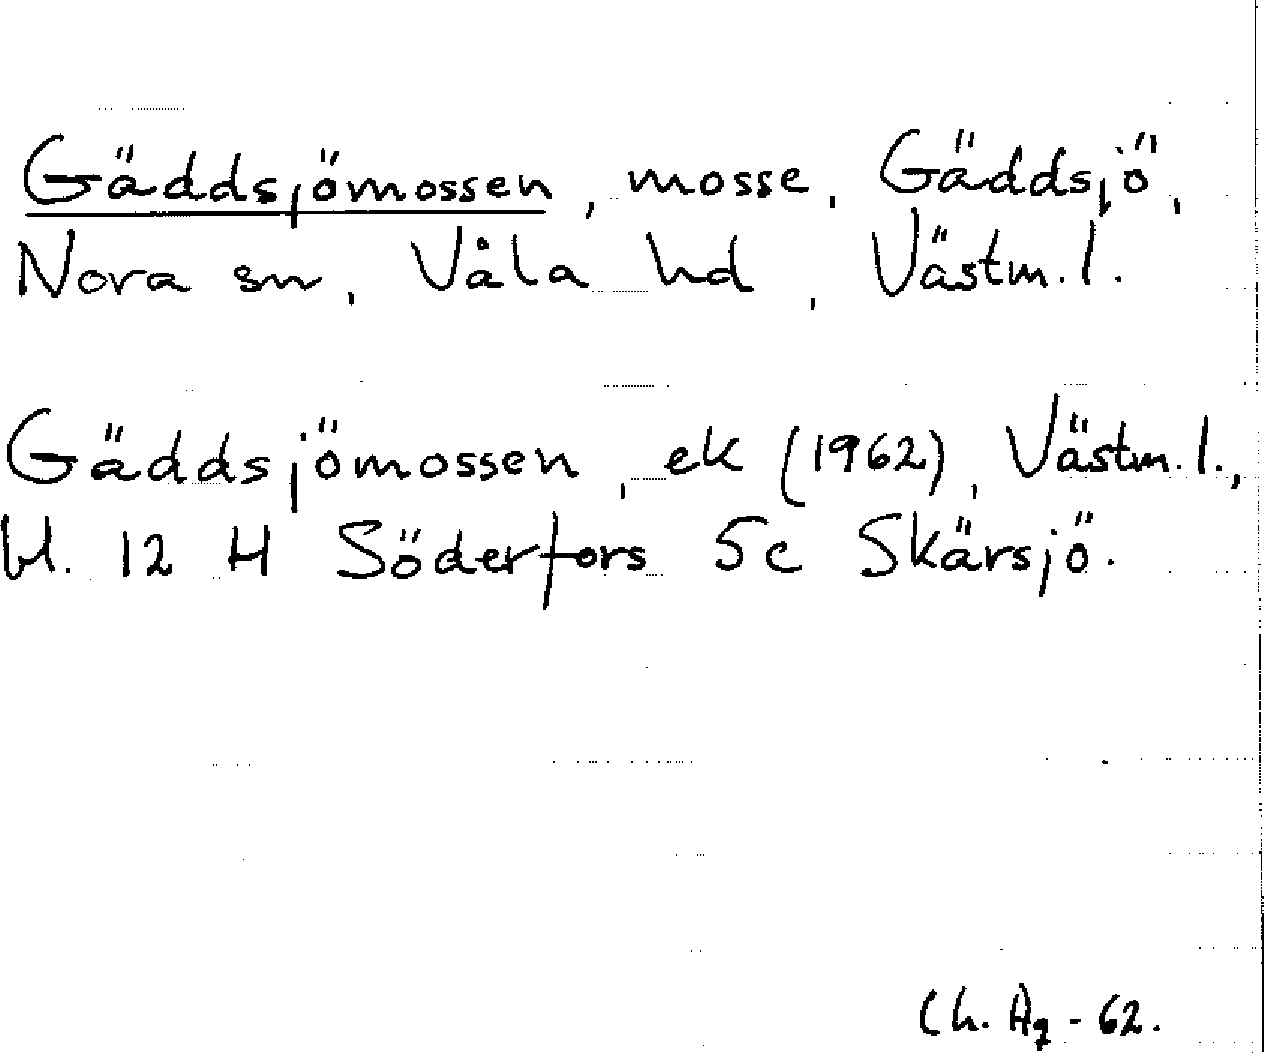 Gäddsjömossen, mosse, Gäddsjö,
Nora sn, Våla hd, Västm. l.
Gäddsjömossen, ek (1962), Västm. l.,
bl. 12 H Söderfors 5c Skärsjö.
Ch. Hg - 62.